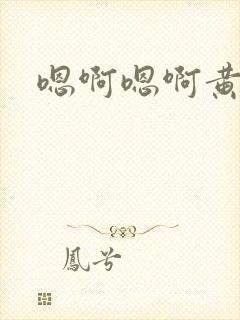 嗯啊嗯啊黄
鳳兮